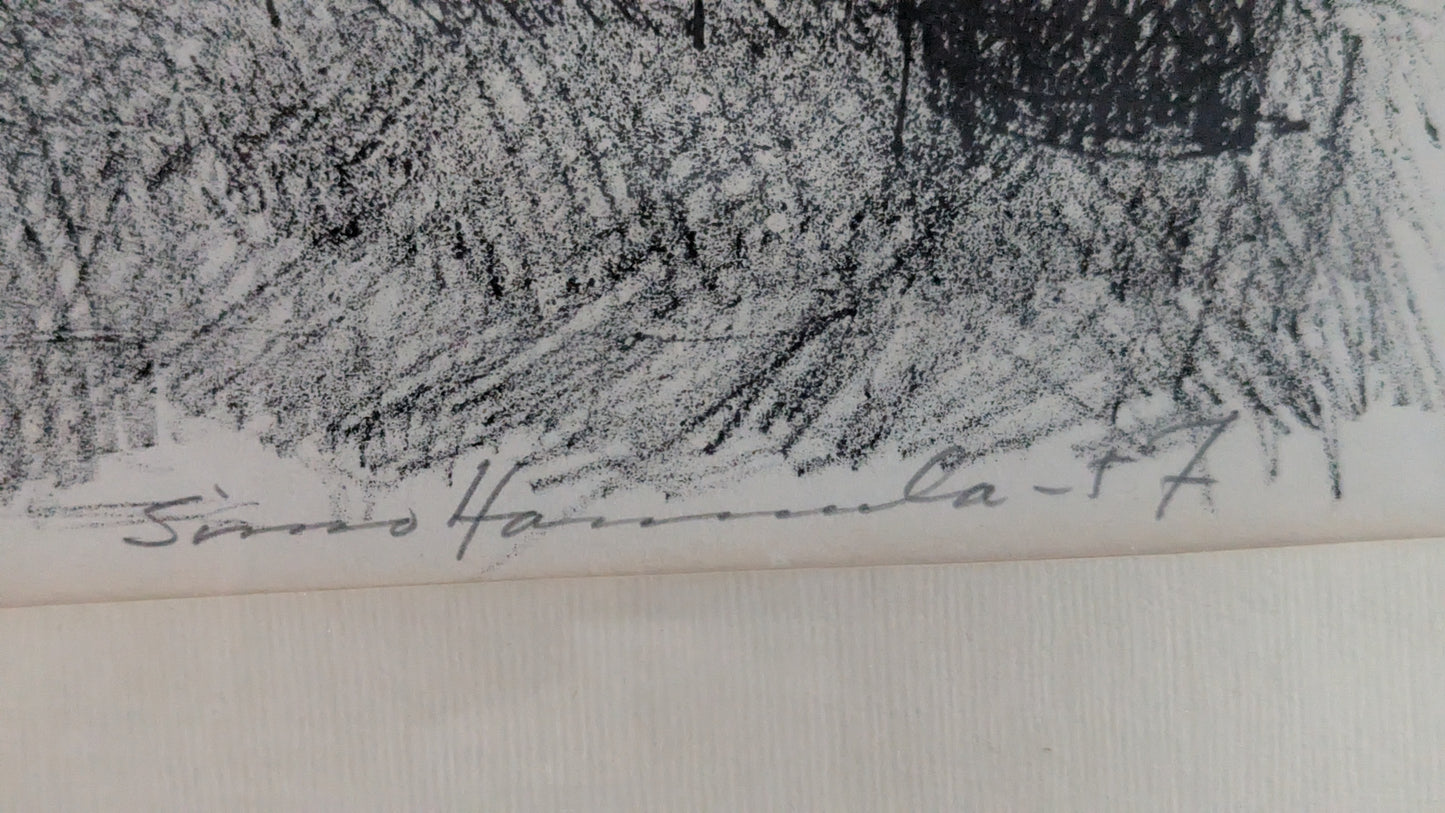 Simo Hannula -57